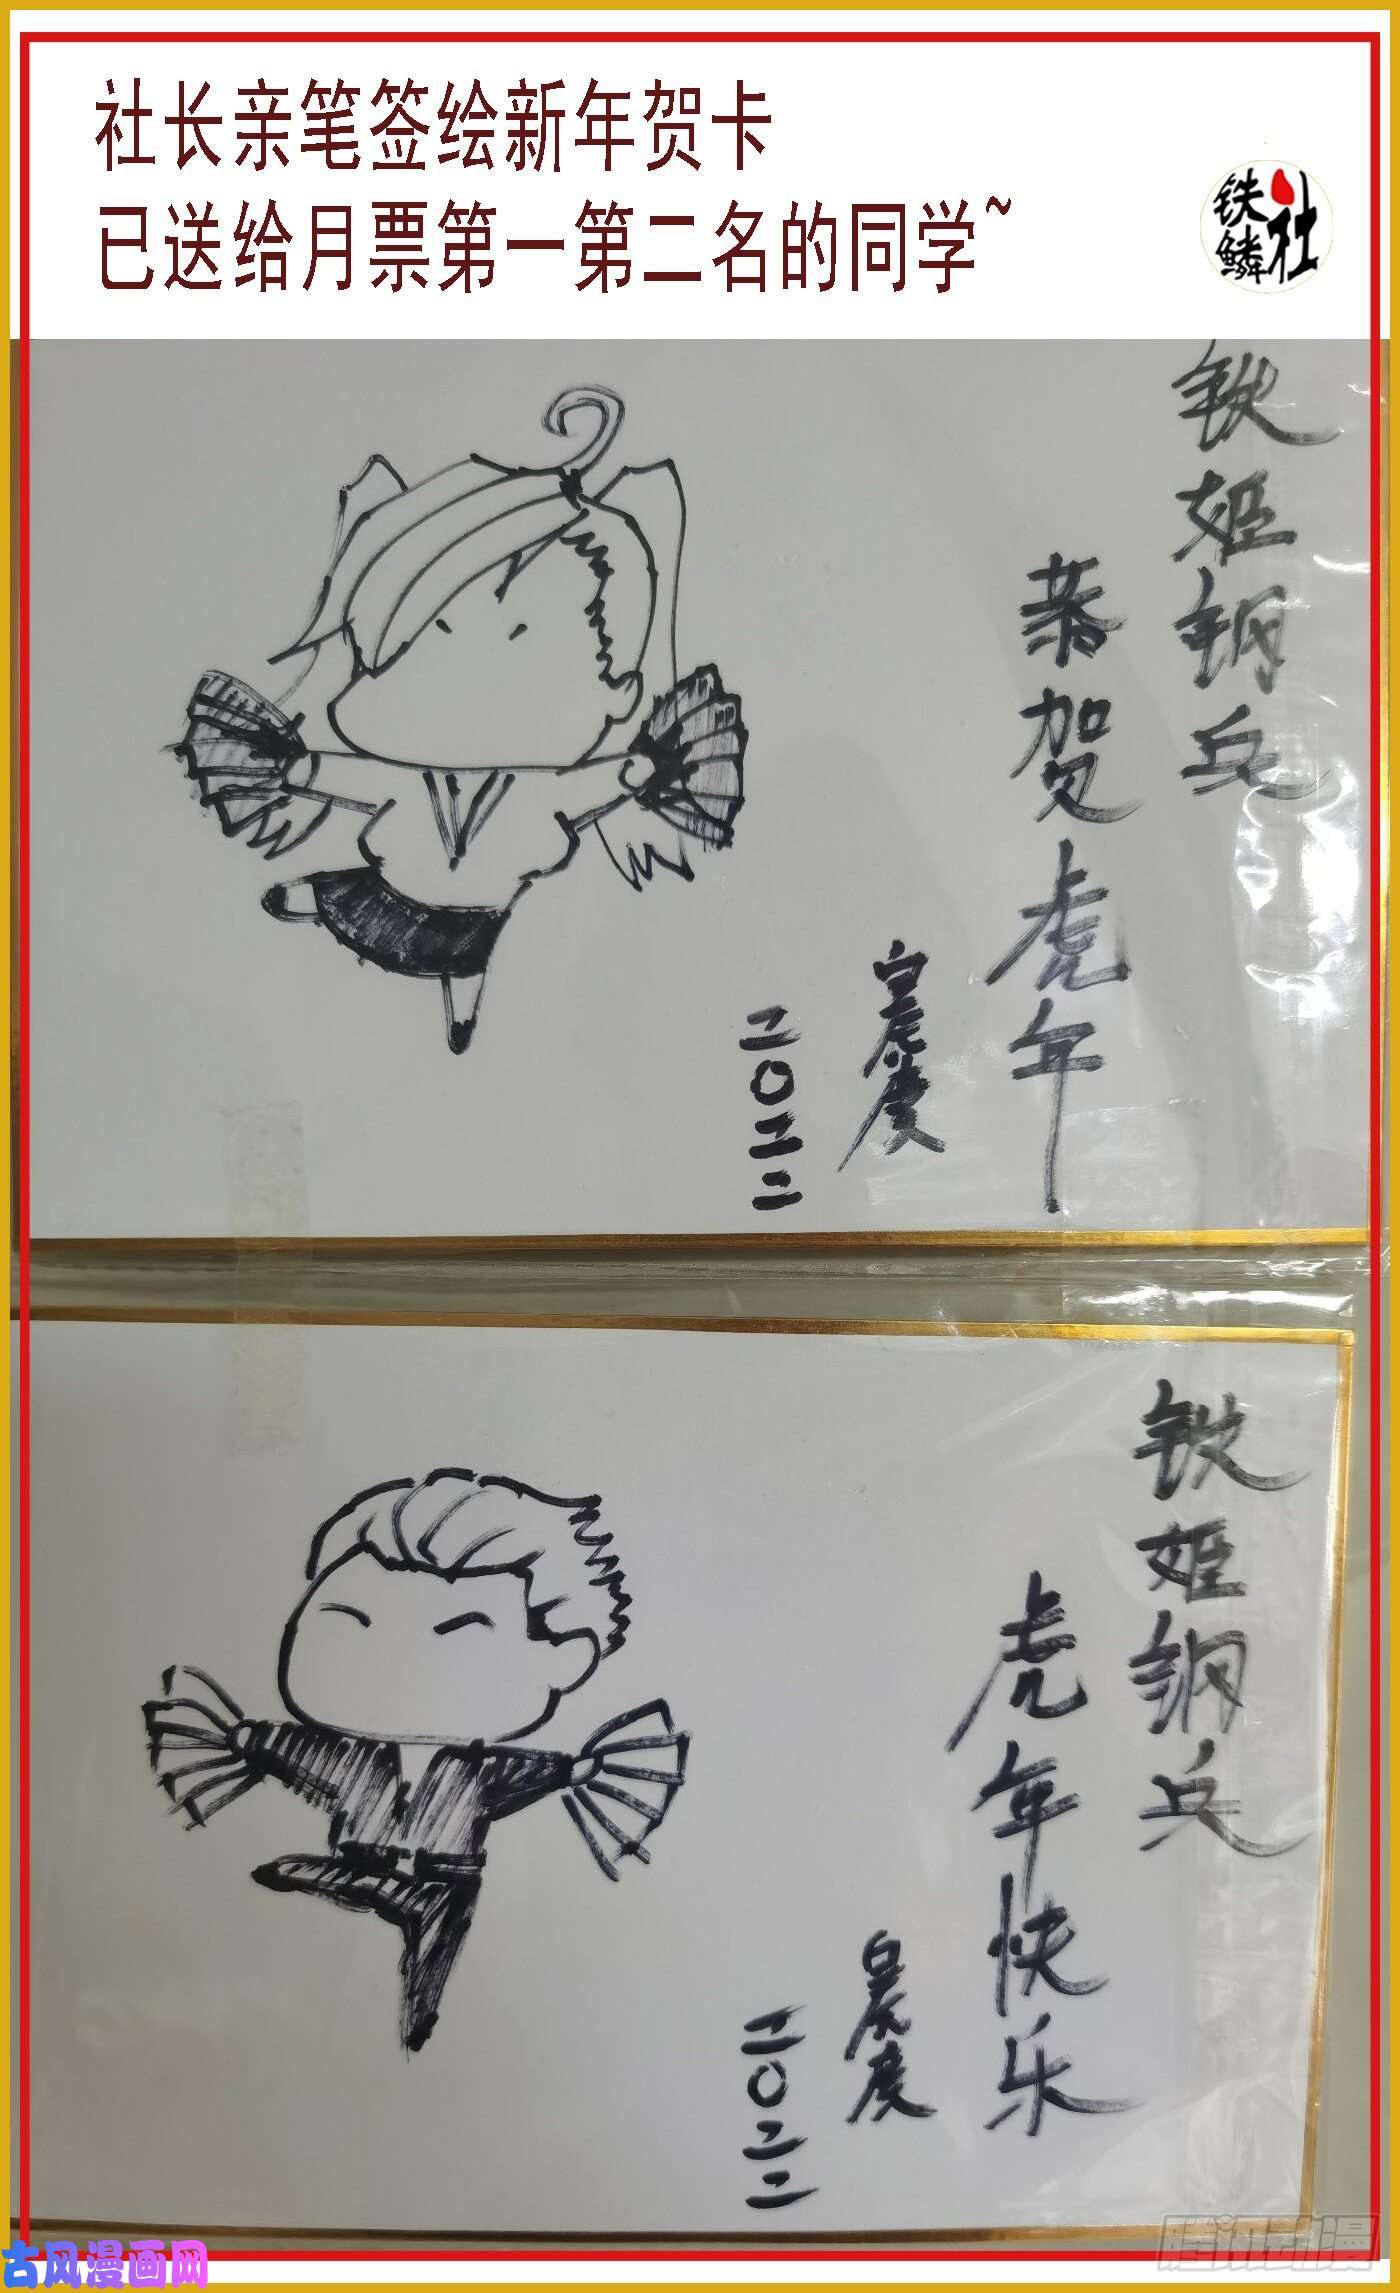 社长亲笔签绘新年贺卡
已送给月票第一第二名的同学~
铁鳞社
铁姬钢兵
恭贺虎年
二〇二二
铁姬钢兵
虎年快乐
二〇二二
腾讯动漫
古风漫画网